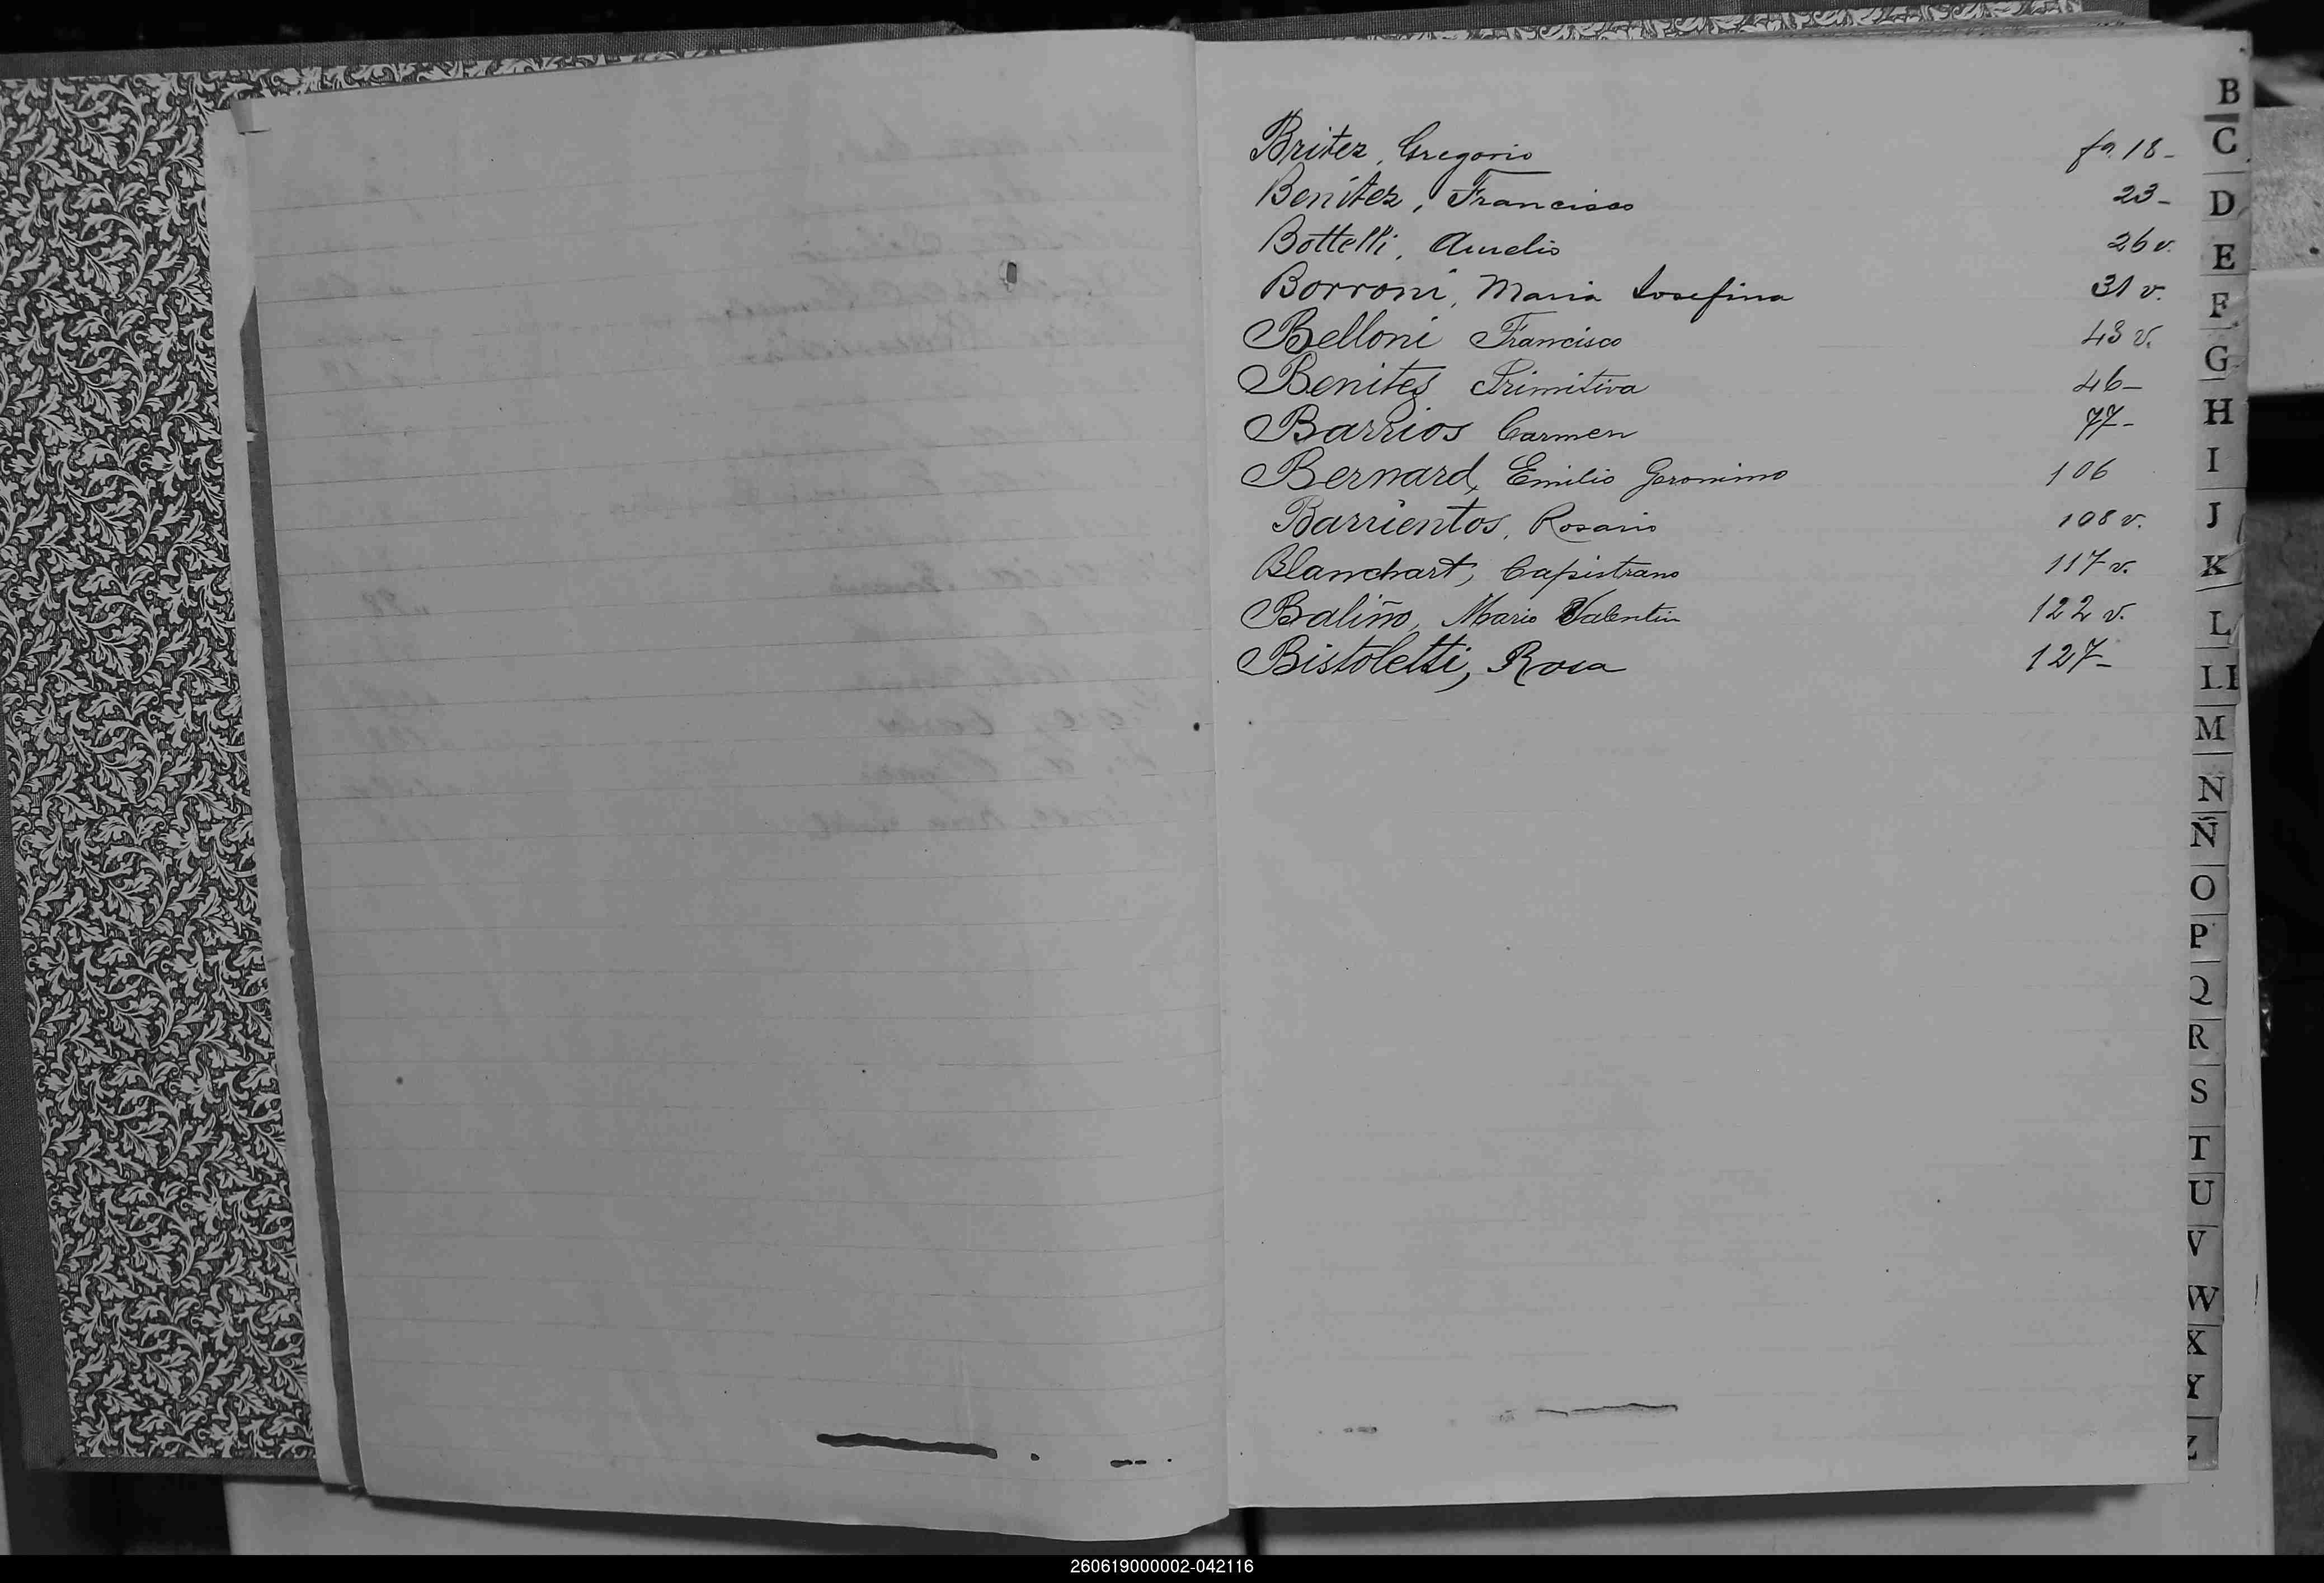 Britez, Gregorio fo. 18-
Benitez, Francisco 23-
Bottelli, Aurelio 26 v.
Borroni, Maria Josefina 31 v.
Belloni Francisco 43 v.
Benites Primitiva 46-
Barrios Carmen 77-
Bernard, Emilio Geronimo 106
Barrientos, Rosario 108 v.
Blanchart, Capistrano 117 v.
Baliño, Mario Valentin 122 v.
Bistoletti, Rosa 127-
B
C
D
E
F
G
H
I
J
K
L
LL
M
N
Ñ
O
P
Q
R
S
T
U
V
W
X
Y
Z
260619000002-042116